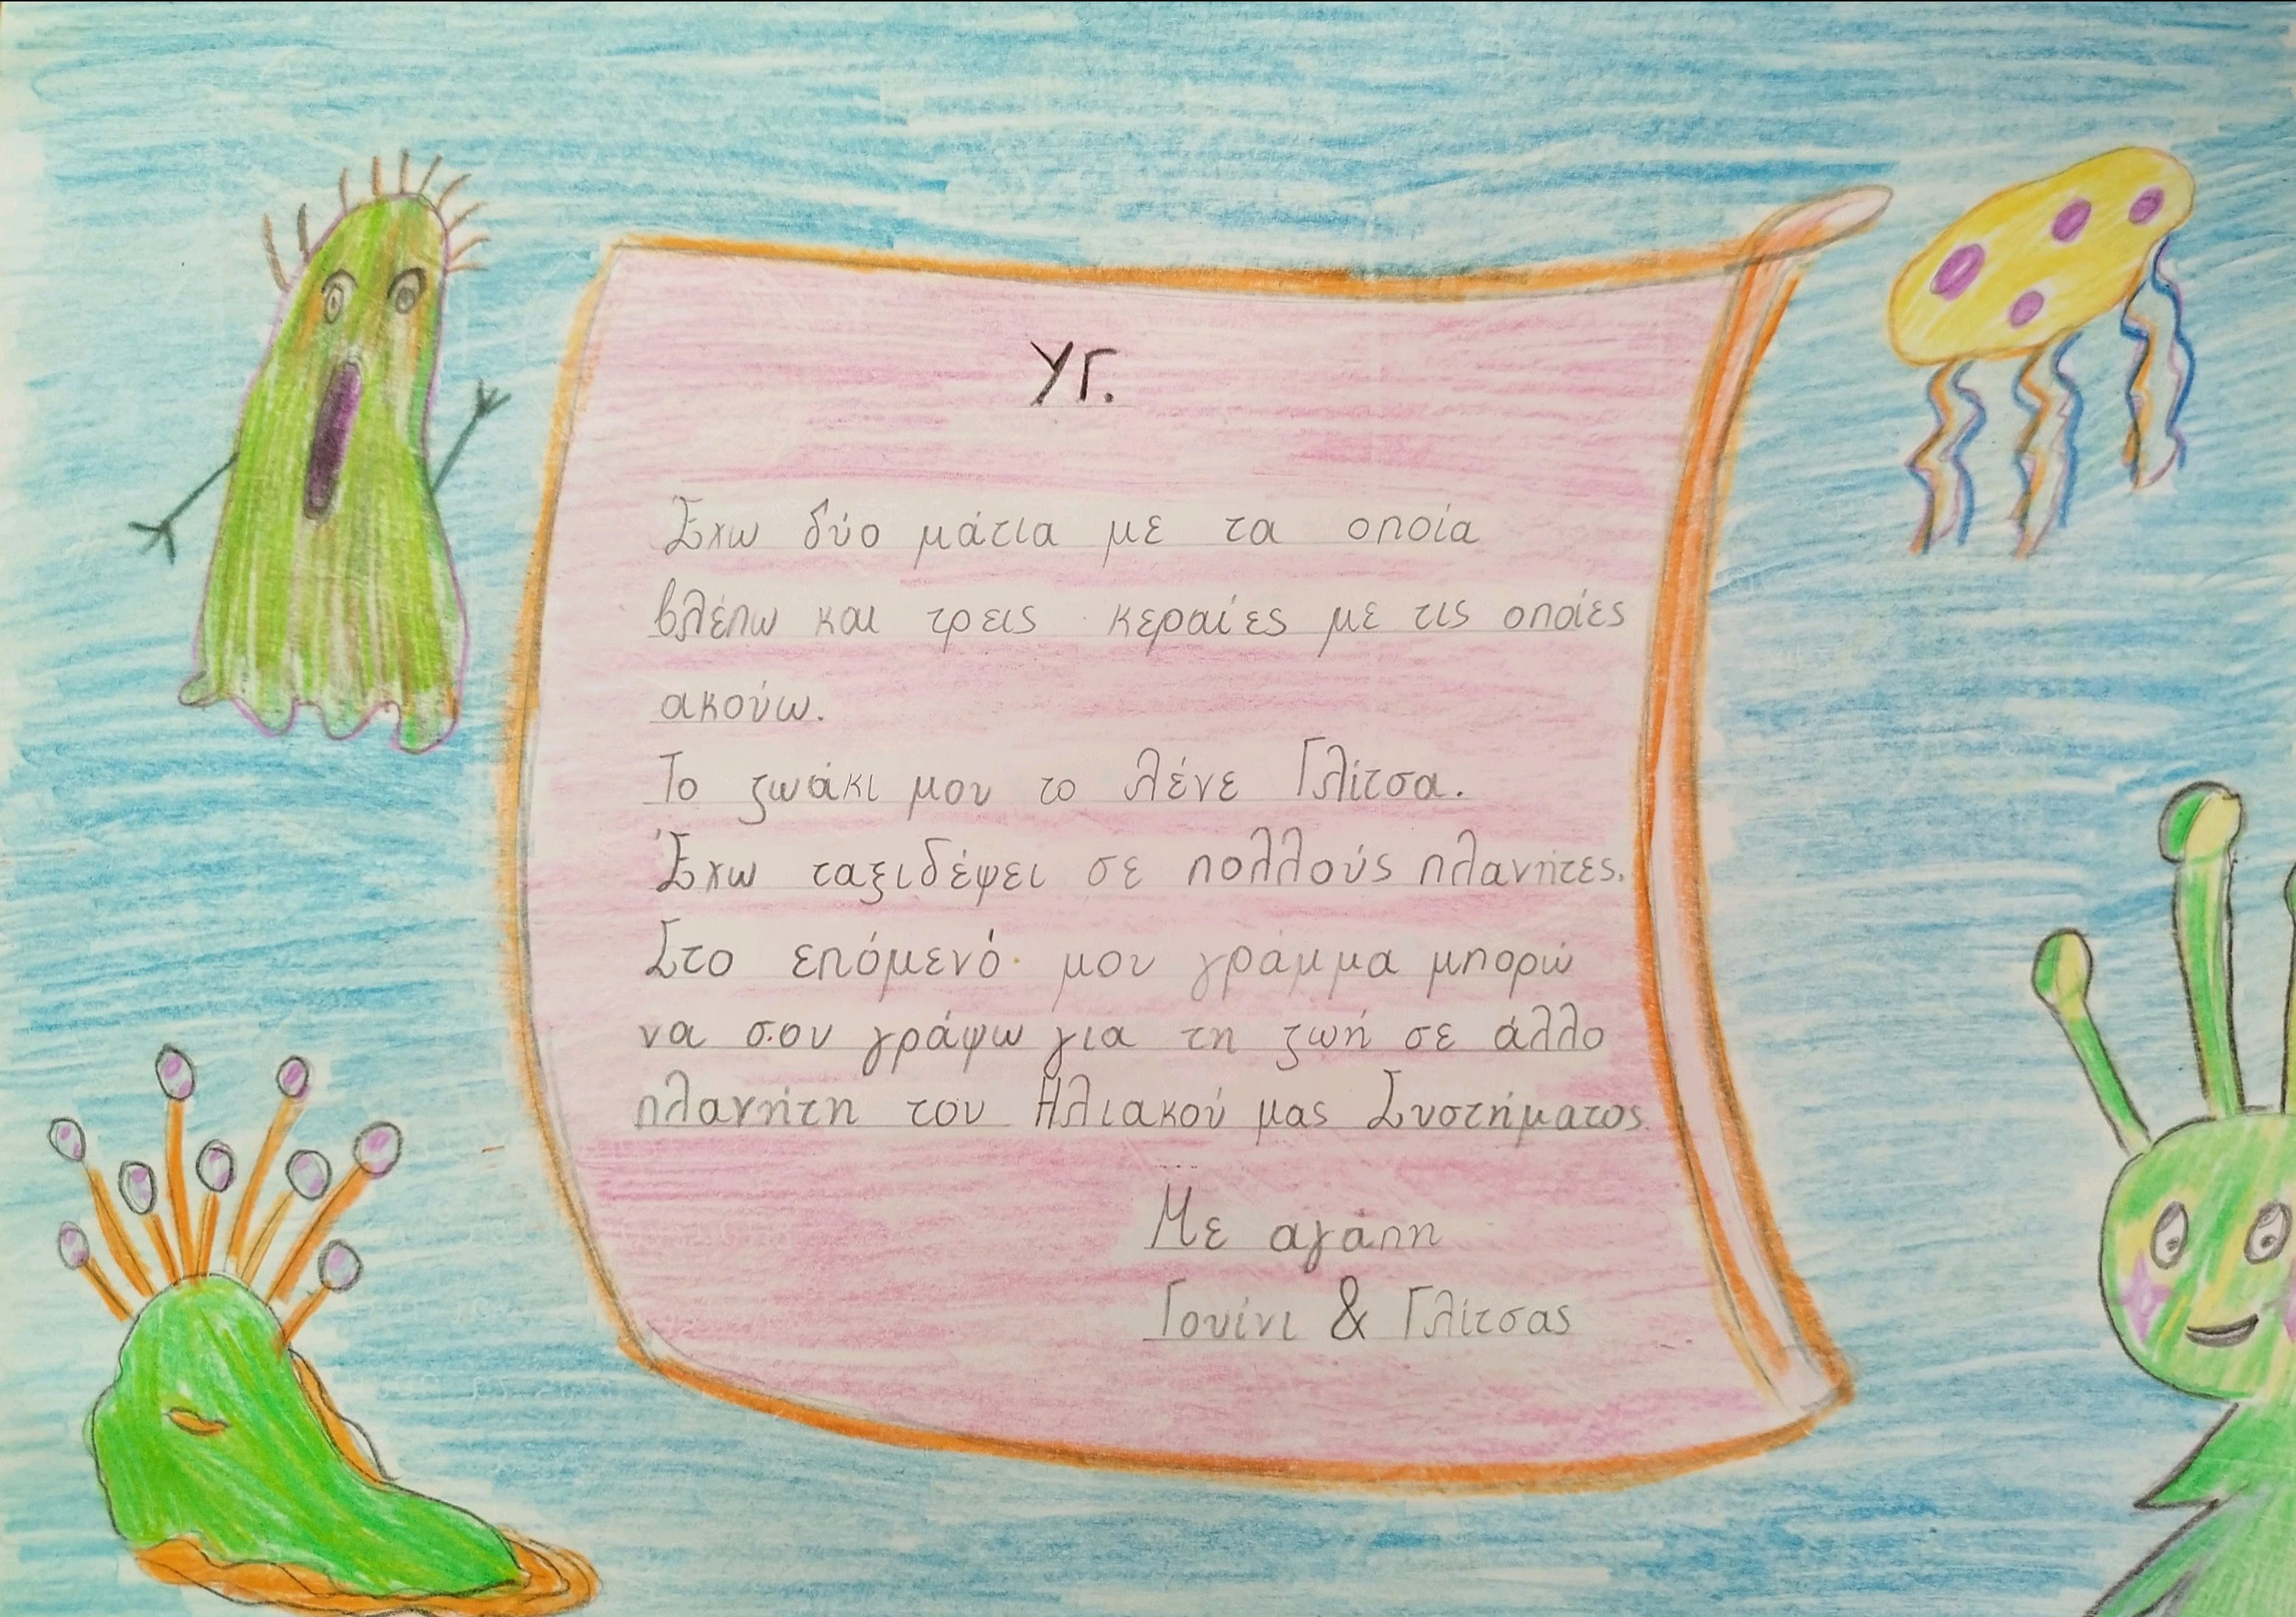 ΥΓ.
Έχω δύο μάτια με τα οποία
βλέπω και τρεις κεραίες με τις οποίες
ακούω.
Το ζωάκι μου το λένε Γλίτσα.
Έχω ταξιδέψει σε πολλούς πλανήτες.
Στο επόμενό μου γράμμα μπορώ
να σου γράψω για τη ζωή σε άλλο
πλανήτη του Ηλιακού μας Συστήματος
Με αγάπη
Γουίνι & Γλίτσας